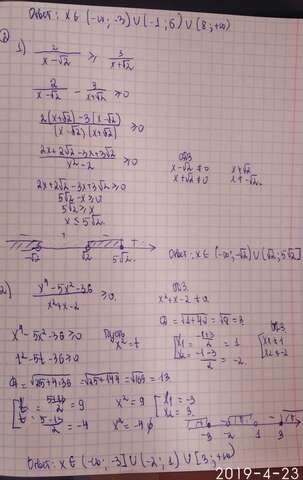 Ответ: x ∈ (-∞; -3) ∪ (-1; 6) ∪ (8; +∞)
②
1) 2/(x-√2) ≥ 3/(x+√2)
2/(x-√2) - 3/(x+√2) ≥ 0
(2(x+√2) - 3(x-√2))/((x-√2)(x+√2)) ≥ 0
(2x+2√2-3x+3√2)/(x²-2) ≥ 0
ОДЗ
x-√2 ≠ 0 x ≠ √2
x+√2 ≠ 0 x ≠ -√2
2x+2√2-3x+3√2 ≥ 0
5√2 - x ≥ 0
5√2 ≥ x
x ≤ 5√2
-√2 √2 5√2
Ответ: x ∈ (-∞; -√2) ∪ (√2; 5√2]
2) (x⁴-5x²-36)/(x²+x-2) ≥ 0
ОДЗ
x²+x-2 ≠ 0
x⁴-5x²-36 ≥ 0
Пусть x² = t
t²-5t-36 ≥ 0
x1 = (-1+3)/2 = 1
x2 = (-1-3)/2 = -2
x ≠ 1
x ≠ -2
= √25+4·36 = √25+144 = √169 = 13
t = (5+13)/2 = 9
t = (5-13)/2 = -4
x² = 9
x1 = -3
x2 = 3
x² = -4
-3 2 1 3
Ответ: x ∈ (-∞; -3] ∪ (-2; 1) ∪ [3; +∞)
2019-4-23